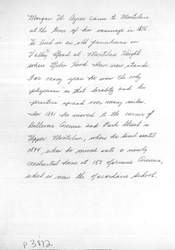 Morgan W. Ayres came to Montclair
at the time of his marriage in 18
He lived in an old farmhouse on
Valley Road at Montclair Heights
where Yale Hook Store now stands.
For many years he was the only
physician in that locality and his
practice spread over many miles.
In 1891 he moved to the corner of
Bellevue Avenue and Park Street in
Upper Montclair, where he lived until
1899, when he moved into a newly
constructed home at 157 Lorraine Avenue,
which is now the Lacordaire School.
p 3872